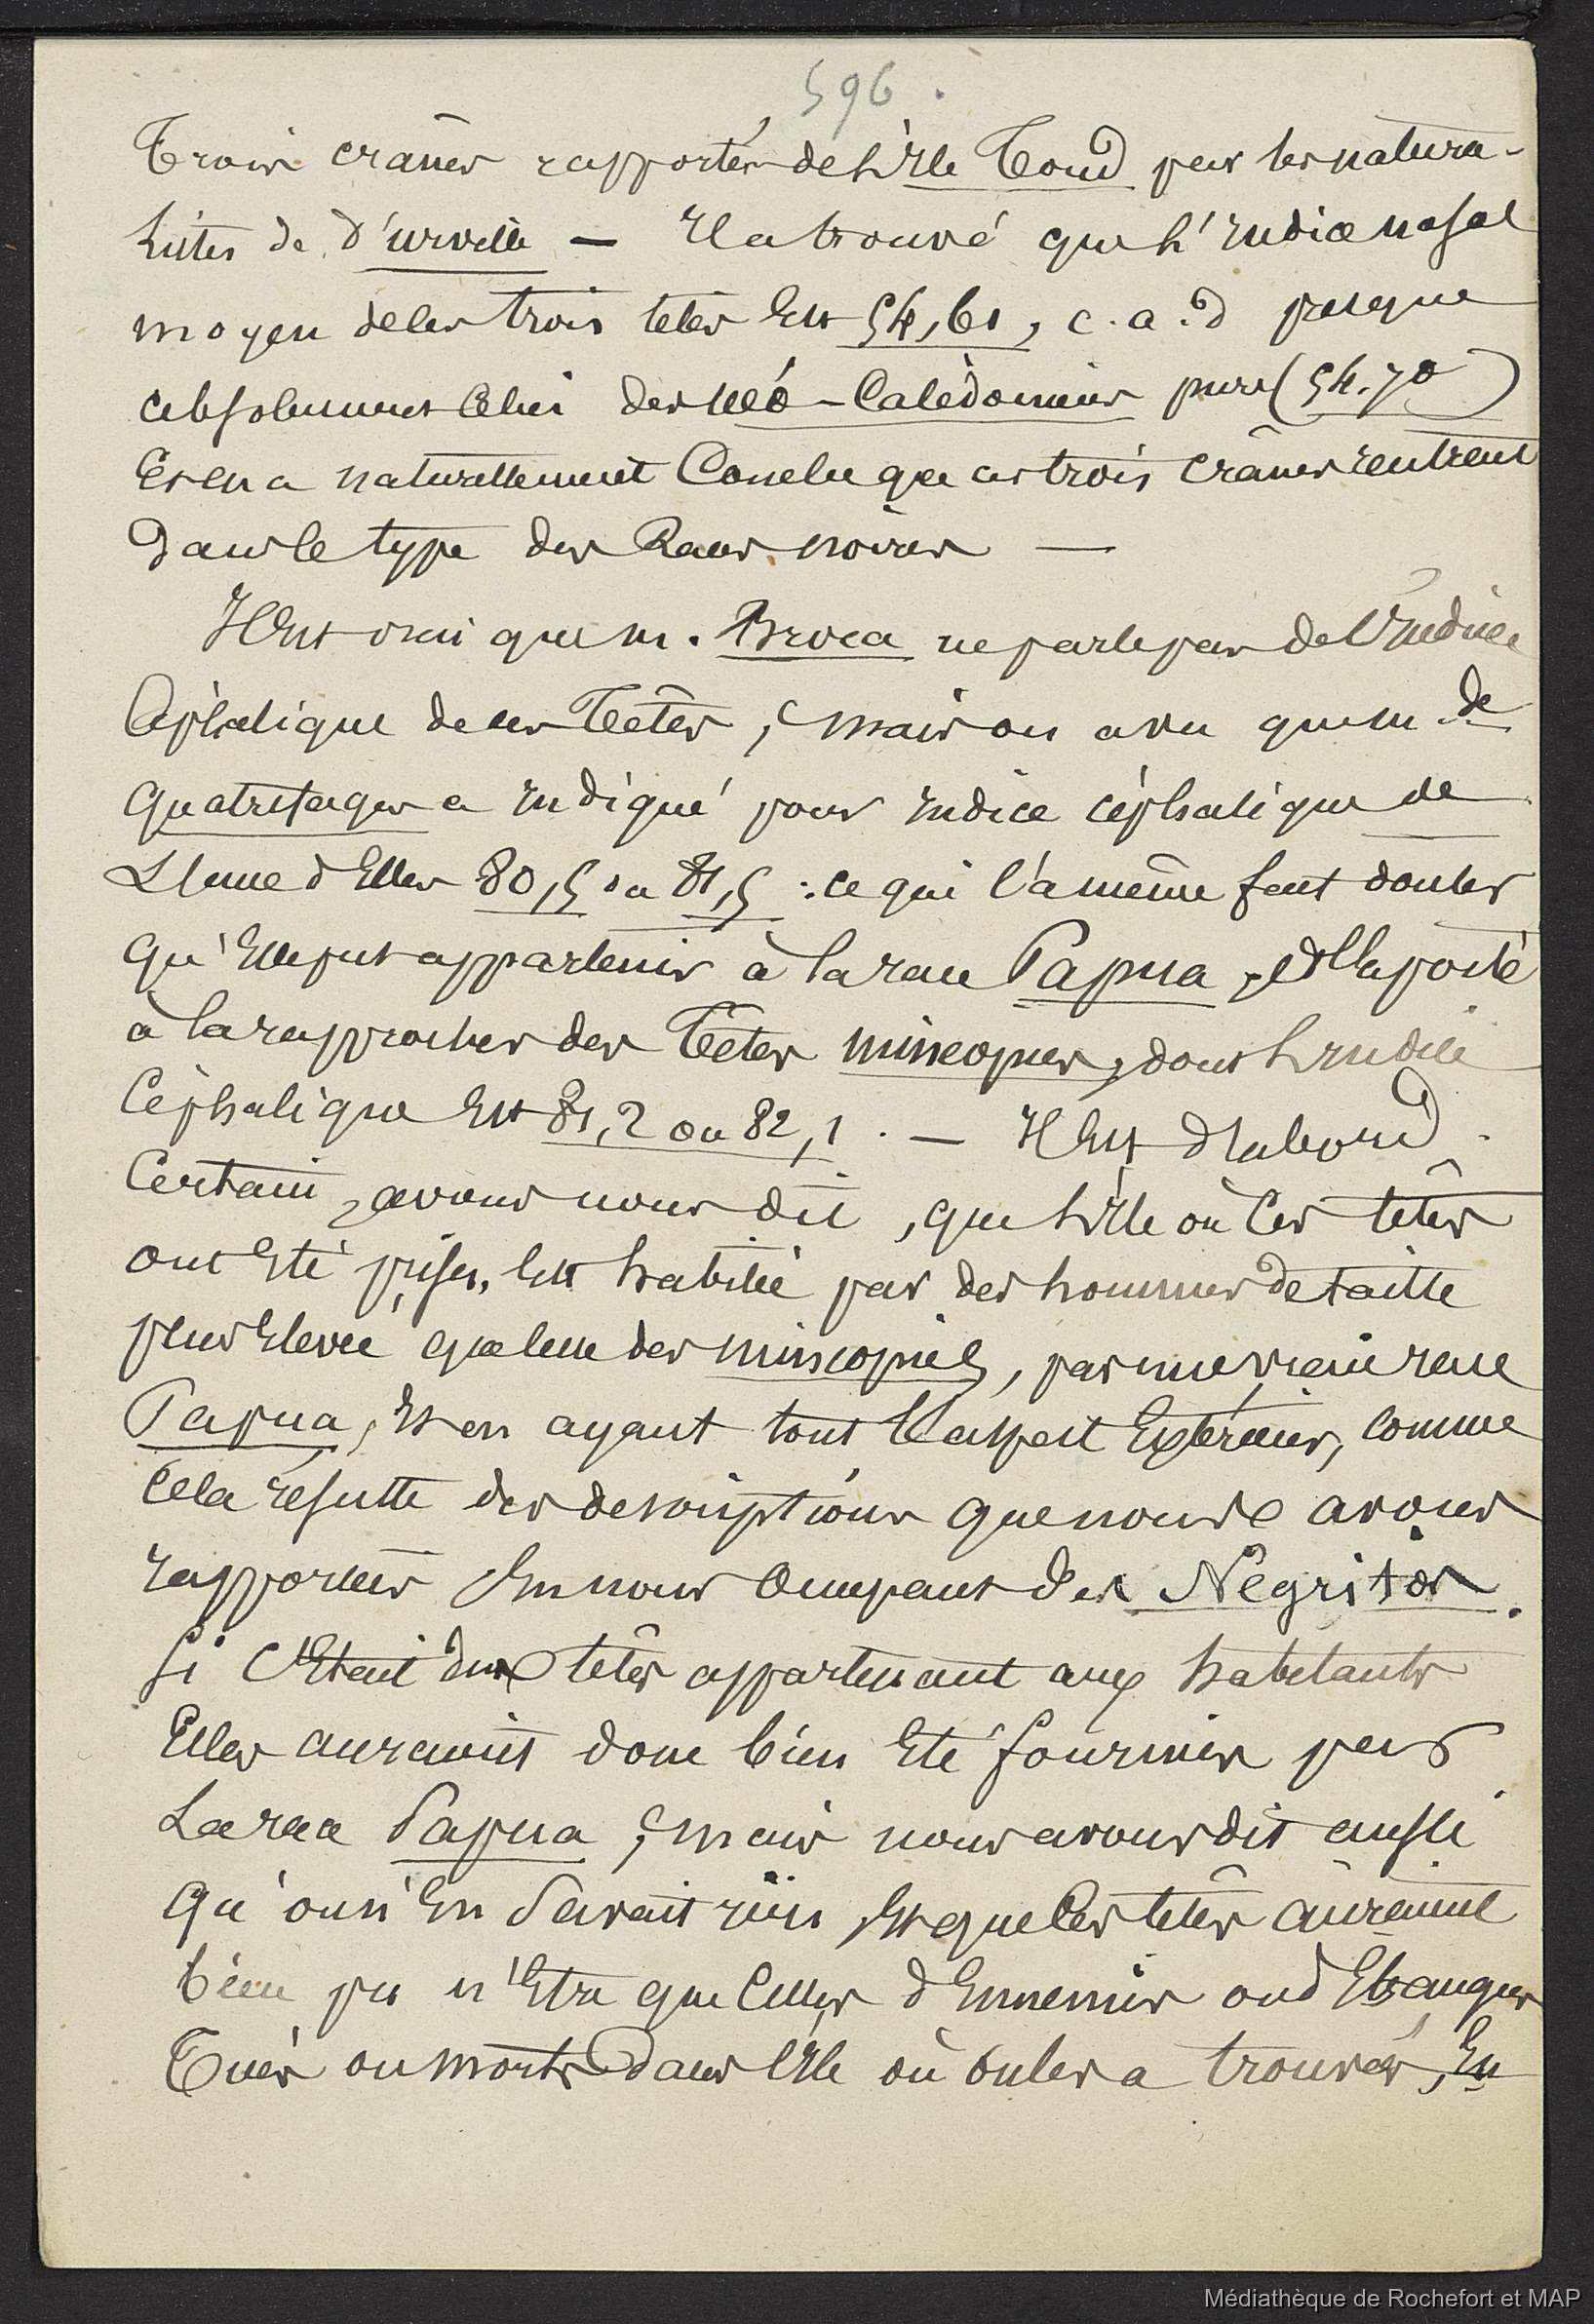 596.
Trois crânes rapportés de l'Ile Toud par les natura-
listes de d'urville — Il a trouvé que l'Indice nasal
moyen de ces trois têtes Est 54,61, c.a.d presque
absolument Celui des Néo-Calédoniens purs (54.70)
Et en a naturellement Conclu que ces trois crânes rentrent
Dans le type des Races noires —
Il Est vrai que M. Broca ne parle pas de l'Indice
Céphalique de ces Têtes, mais on a vu que M. de
Quatrefages a Indiqué pour Indice céphalique de
L'une d'Elles 80,5 ou 81,5 : ce qui l'a même fait douter
qu'Elle put appartenir à la race Papua, et l'a porté
à la rapprocher des Têtes mincopies, dont l'Indice
Céphalique Est 81,2 ou 82,1. — Il Est d'abord
Certain, avons nous dit, que l'Ile où Ces têtes
ont Eté prises, Est habitée par des hommes de taille
plus Elevée que celle des mincopies, par une vraie race
Papua, Et en ayant tout l'aspect Extérieur, comme
Cela résulte des descriptions que nous avons
rapportées En nous Occupant des Négritos.
Si C'Etait des têtes appartenant aux habitants
Elles auraient donc bien Eté fournies par
La race Papua ; mais nous avons dit aussi
Qu'on n'En Savait rien, Et que Ces têtes auraient
bien pu n'Etre que Celles d'Ennemis ou d'Etrangers
Tués ou morts Dans l'Ile où on les a trouvés, En
Médiathèque de Rochefort et MAP